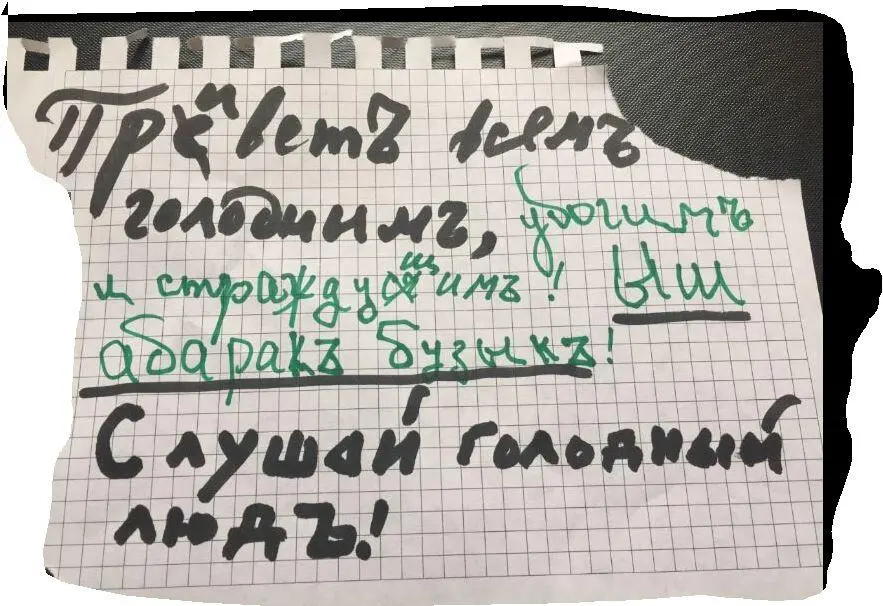 Приветъ всемъ
голоднымъ, убогимъ
и страждущимъ! Ыш
абаракъ бузыкъ!
Слушай голодный
людъ!